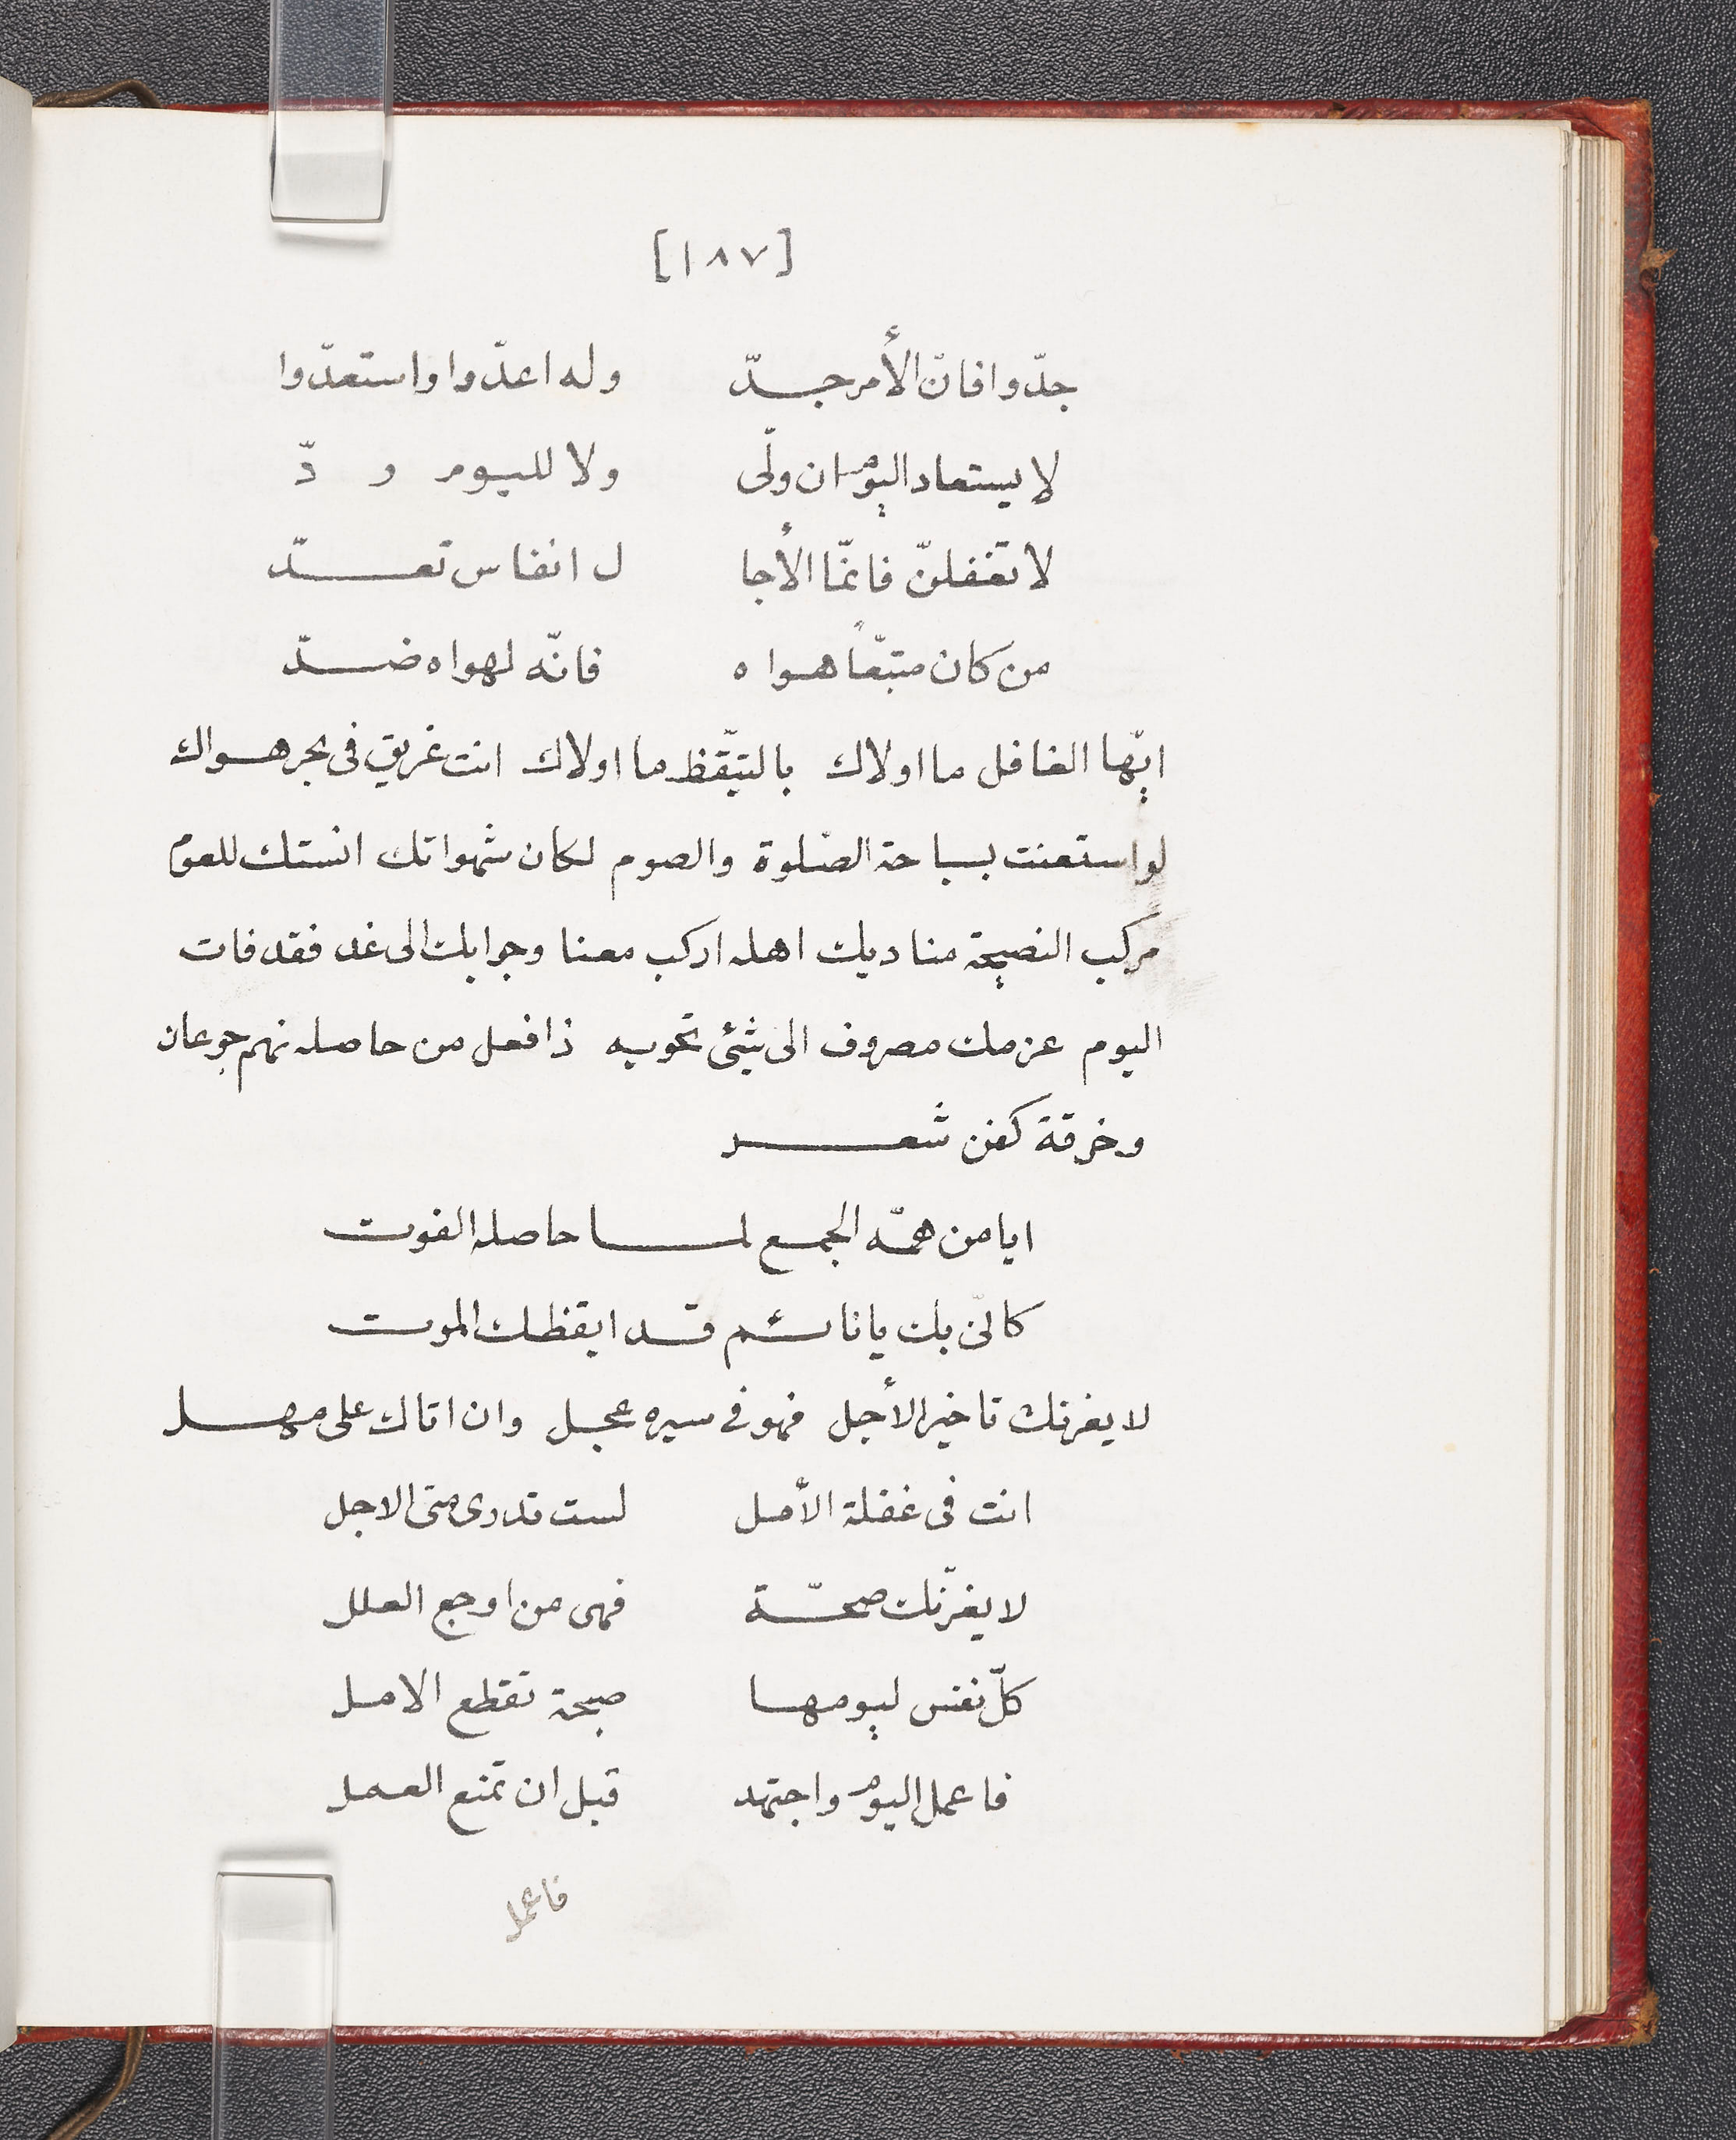 [١٨٧]
جدّوا فانّ الأمر جدّ وله اعدّوا واستعدّوا
لا يستعاد اليوم ان ولّى ولا لليوم ردّ
لا تغفلنّ فانمّا الأجا ل انفاس تعدّ
من كان متبعّاً هواه فانّه لهواه ضدّ
ايّها الغافل ما اولاك بالتيّقظ ما اولاك انت غريق فى بحر هواك
لو استعنت بسباحة الصّلوة والصوم لكان شهواتك انستك للعوم
مركب النصيحة مناديك اهله اركب معنا وجوابك الى غد فقد فات
اليوم عزمك مصروف الى شئ تحويه ذا فعل من حاصله نهم جوعان
وخرقة كفن شعر
ايا من همّه الجمع لما حاصله الفوت
كانّى بك يا نائم قد ايقظك الموت
لا يغرنك تاخير الأجل فهو فى سيره عجل وان اتاك على مهل
انت فى غفلة الأمل لست تدرى متى الاجل
لا يغرّنك صحّة فهى من اوجع العلل
كلّ نفس ليومها صبحة تقطع الامل
فاعمل اليوم واجتهد قبل ان تمنع العمل
فاعمل